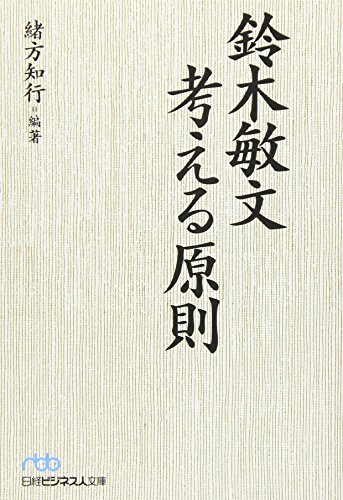 鈴木敏文
考える原則
緒方知行=編著
nbb
日経ビジネス人文庫